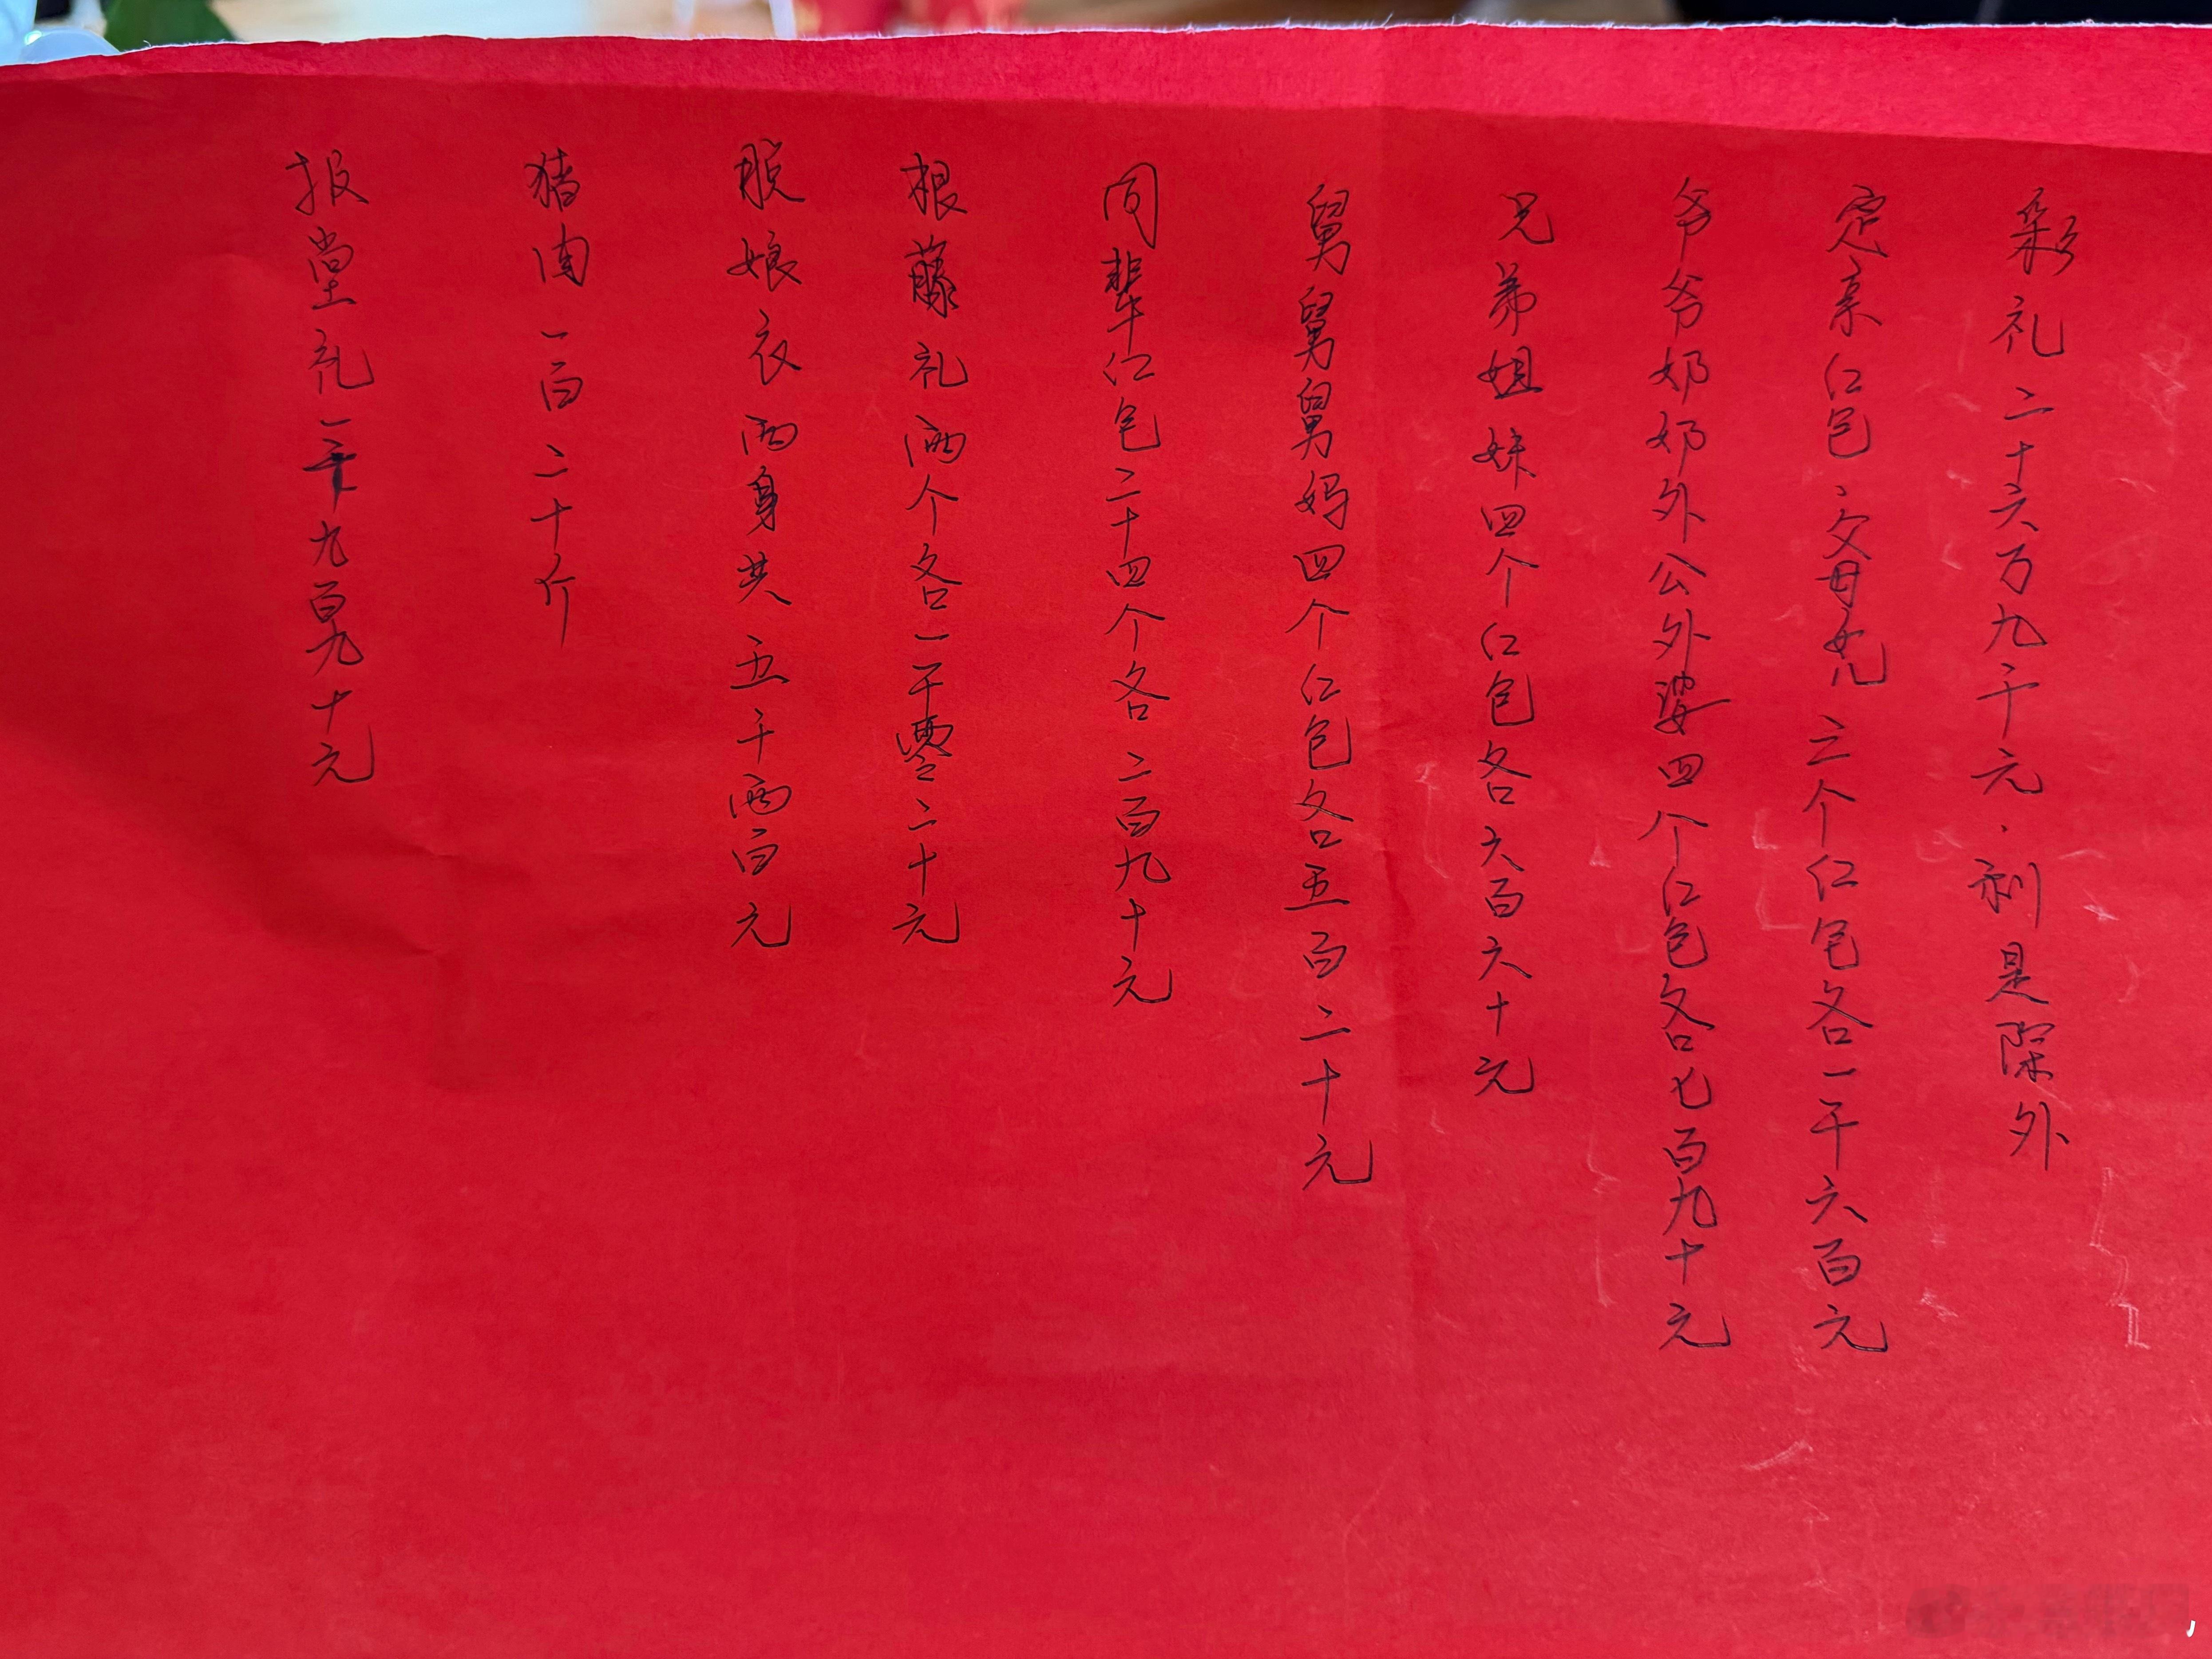 彩礼二十六万九千元.利是除外
定亲红包、父母女儿三个红包各一千六百元
爷爷奶奶外公外婆四个红包各七百九十元
兄弟姐妹四个红包各六百六十元
舅舅舅妈四个红包各五百二十元
同辈红包二十四个各二百九十元
根藤礼两个各一千零二十元
脱娘衣两身共五千两百元
猪肉一百二十斤
报堂礼一千九百九十元